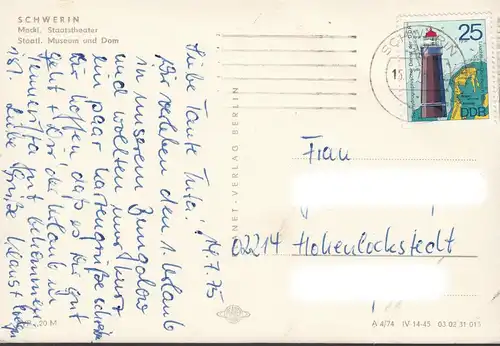 SCHWERIN
Meckl. Staatstheater
Staatl. Museum und Dom
14.7.75
Liebe Tante Tuta!
Wir verleben den 1. Urlaub
in unserem Bungalow
und wollten nur kurz
ein paar Kartengrüße schreiben
Wir hoffen, daß es Dir gut
geht + Dir der Urlaub in
gut bekommen
ist. Liebe Grüße
20 M
PLANET-VERLAG BERLIN
A 4/74 IV-14-45 03 02 31 015
SCHWERIN
25
DDR
Frau
02214 Hohenlockstedt